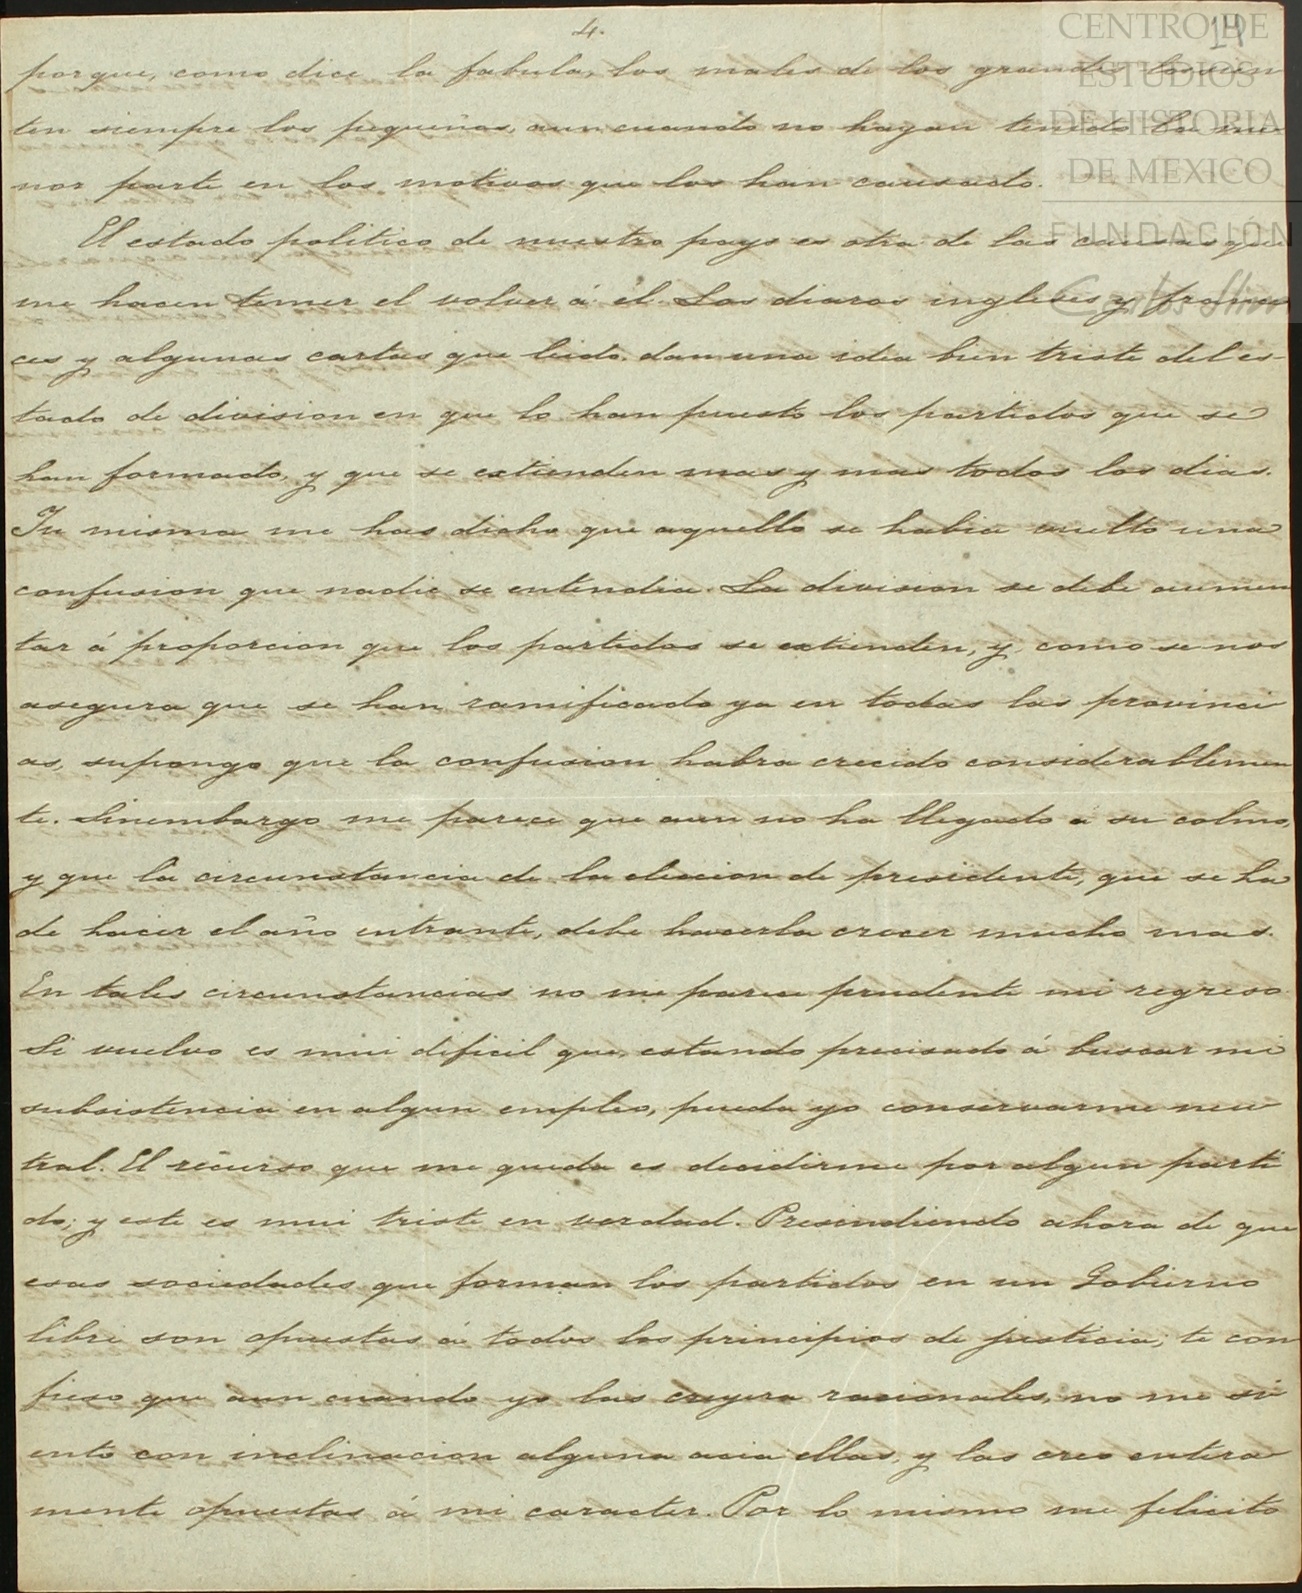 4.
14
CENTRO DE
ESTUDIOS
DE HISTORIA
DE MEXICO
FUNDACIÓN
Carlos Slim
porque, como dice la fabula, los males de los grandes los sien
ten siempre los pequeños, aun cuando no hayan tenido la me-
nor parte en los motivos que los han causado.
El estado politico de nuestro pays es otra de las causas que
me hacen temer el volver á él. Los diaros ingleses y france
ces y algunas cartas que leido dan una idea bien triste del es-
tado de division en que lo han puesto los partidos que se
han formado, y que se extienden mas y mas todos los dias.
Tu misma me has dicho que aquello se habia vuelto una
confusion que nadie se entendia. La division se debe aumen
tar á proporcion que los partidos se extienden, y como se nos
asegura que se han ramificado ya en todas las provinci
as, supongo que la confusion habra crecido considerablemen
te. Sinembargo me parece que aun no ha llegado a su colmo,
y que la circunstancia de la eleccion de presidente, que se ha
de hacer el año entrante, debe hacerla crecer mucho mas.
En tales circunstancias no me parece prudente mi regreso
Si vuelvo es mui dificil que, estando precisado á buscar mi
subsistencia en algun empleo, pueda yo conservarme neu
tral. El recurso que me queda es decidirme por algun parti
do; y este es mui triste en verdad. Presindiendo ahora de que
esas sociedades que forman los partidos en un Gobierno
libre son opuestas á todos los principios de justicia; te con
fieso que aun cuando yo las creyera racionales, no me si
ento con inclinacion alguna acia ellas, y las creo entera
mente opuestas á mi caracter. Por lo mismo me felicito